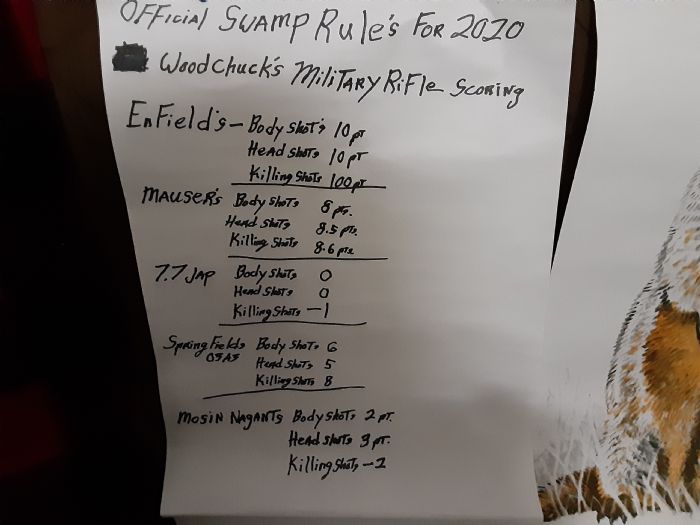 OFFICIAL SWAMP RULE'S FOR 2020
WOODCHUCK'S MILITARY RIFLE SCORING
ENFIELD'S - BODY SHOT'S 10 PT
HEAD SHOTS 10 PT
KILLING SHOTS 100 PT
MAUSER'S BODY SHOTS 8 PTS.
HEAD SHOTS 8.5 PTS.
KILLING SHOTS 8.6 PTS
7.7 JAP BODY SHOTS 0
HEAD SHOTS 0
KILLING SHOTS -1
SPRINGFIELDS BODY SHOTS 6
03A3 HEAD SHOTS 5
KILLING SHOTS 8
MOSIN NAGANTS BODY SHOTS 2 PT.
HEAD SHOTS 3 PT.
KILLING SHOTS -1